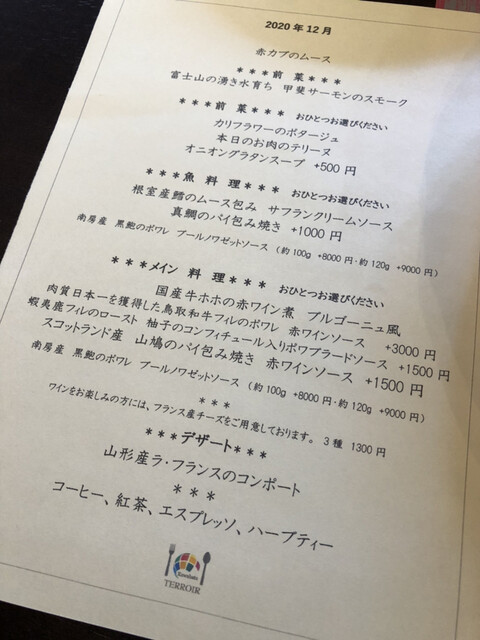 2020 年 12 月
赤カブのムース
＊＊＊前 菜＊＊＊
富士山の湧き水育ち 甲斐サーモンのスモーク
＊＊＊前 菜＊＊＊ おひとつお選びください
カリフラワーのポタージュ
本日のお肉のテリーヌ
オニオングラタンスープ +500 円
＊＊＊魚 料 理＊＊＊ おひとつお選びください
根室産鱈のムース包み サフランクリームソース
真鯛のパイ包み焼き +1000 円
南房産 黒鮑のポワレ ブールノワゼットソース （約 100g +8000 円・約 120g +9000 円）
＊＊＊メイン 料 理＊＊＊ おひとつお選びください
国産牛ホホの赤ワイン煮 ブルゴーニュ風
肉質日本一を獲得した鳥取和牛フィレのポワレ 赤ワインソース +3000 円
蝦夷鹿フィレのロースト 柚子のコンフィチュール入りポワブラードソース +1500 円
スコットランド産 山鳩のパイ包み焼き 赤ワインソース +1500 円
南房産 黒鮑のポワレ ブールノワゼットソース （約 100g +8000 円・約 120g +9000 円）
＊＊＊
ワインをお楽しみの方には、フランス産チーズをご用意しております。 3 種 1300 円
＊＊＊デザート＊＊＊
山形産ラ・フランスのコンポート
＊＊＊
コーヒー、紅茶、エスプレッソ、ハーブティー
TERROIR